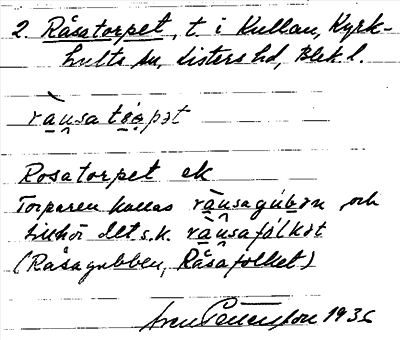 2. Råsatorpet, t. i Kullan, Kyrk-
hults sn, Listers hd, Blek l.
ràu̯satóo̯pət
Rosatorpet ek
Torparen kallas ràu̯sagúbən och
tillhör det s.k. ràu̯safólkət
(Råsagubben, Råsafolket)
Sven Pettersson 1936